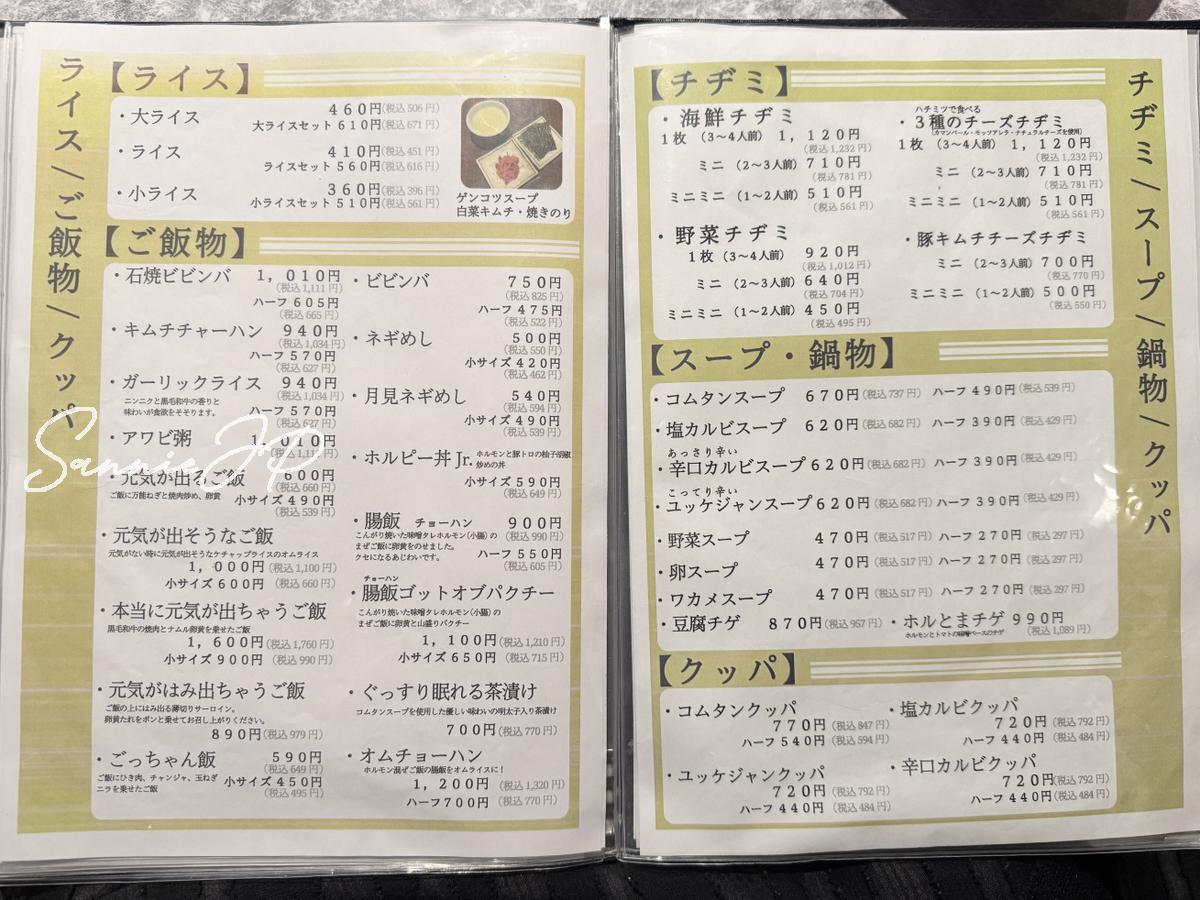 ライス/ご飯物/クッパ
【ライス】
・大ライス 460円(税込506円)
大ライスセット 610円(税込671円)
・ライス 410円(税込451円)
ライスセット 560円(税込616円)
・小ライス 360円(税込396円)
小ライスセット 510円(税込561円)
ゲンコツスープ
白菜キムチ・焼きのり
【ご飯物】
・石焼ビビンバ 1,010円
(税込1,111円)
ハーフ 605円
(税込665円)
・キムチチャーハン 940円
(税込1,034円)
ハーフ 570円
(税込627円)
・ガーリックライス 940円
(税込1,034円)
ニンニクと黒毛和牛の香りと
味わいが食欲をそそります。
ハーフ 570円
(税込627円)
・アワビ粥 1,010円
(税込1,111円)
・元気が出るご飯 600円
(税込660円)
ご飯に万能ねぎと焼肉炒め、卵黄
小サイズ 490円
(税込539円)
・元気が出そうなご飯
元気がない時に元気が出そうなケチャップライスのオムライス
1,000円(税込1,100円)
小サイズ 600円(税込660円)
・本当に元気が出ちゃうご飯
黒毛和牛の焼肉とナムル卵黄を乗せたご飯
1,600円(税込1,760円)
小サイズ 900円(税込990円)
・元気がはみ出ちゃうご飯
ご飯の上にはみ出る薄切りサーロイン。
卵黄たれをポンと乗せてお召し上がりください。
890円(税込979円)
・ごっちゃん飯 590円
(税込649円)
ご飯にひき肉、チャンジャ、玉ねぎ
ニラを乗せたご飯
小サイズ 450円
(税込495円)
・ビビンバ 750円
(税込825円)
ハーフ 475円
(税込522円)
・ネギめし 500円
(税込550円)
小サイズ 420円
(税込462円)
・月見ネギめし 540円
(税込594円)
小サイズ 490円
(税込539円)
・ホルピー丼Jr. ホルモンと豚トロの柚子胡椒
炒めの丼
小サイズ 590円
(税込649円)
・腸飯 チョーハン 900円
(税込990円)
こんがり焼いた味噌タレホルモン(小腸)の
まぜご飯に卵黄をのせました。
クセになるあじわいです。
ハーフ 550円
(税込605円)
チョーハン
・腸飯ゴットオブパクチー
こんがり焼いた味噌タレホルモン(小腸)の
まぜご飯に卵黄と山盛りパクチー
1,100円(税込1,210円)
小サイズ 650円(税込715円)
・ぐっすり眠れる茶漬け
コムタンスープを使用した優しい味わいの明太子入り茶漬け
700円(税込770円)
・オムチョーハン
ホルモン混ぜご飯の腸飯をオムライスに!
1,200円(税込1,320円)
ハーフ700円(税込770円)
SannieJP
チヂミ/スープ/鍋物/クッパ
【チヂミ】
・海鮮チヂミ
1枚(3〜4人前) 1,120円
(税込1,232円)
ミニ(2〜3人前) 710円
(税込781円)
ミニミニ(1〜2人前) 510円
(税込561円)
・野菜チヂミ
1枚(3〜4人前) 920円
(税込1,012円)
ミニ(2〜3人前) 640円
(税込704円)
ミニミニ(1〜2人前) 450円
(税込495円)
ハチミツで食べる
・3種のチーズチヂミ
(カマンベール・モッツアレラ・ナチュラルチーズを使用)
1枚(3〜4人前) 1,120円
(税込1,232円)
ミニ(2〜3人前) 710円
(税込781円)
ミニミニ(1〜2人前) 510円
(税込561円)
・豚キムチチーズチヂミ
ミニ(2〜3人前) 700円
(税込770円)
ミニミニ(1〜2人前) 500円
(税込550円)
【スープ・鍋物】
・コムタンスープ 670円(税込737円) ハーフ 490円(税込539円)
・塩カルビスープ 620円(税込682円) ハーフ 390円(税込429円)
あっさり辛い
・辛口カルビスープ 620円(税込682円) ハーフ 390円(税込429円)
こってり辛い
・ユッケジャンスープ 620円(税込682円) ハーフ 390円(税込429円)
・野菜スープ 470円(税込517円) ハーフ 270円(税込297円)
・卵スープ 470円(税込517円) ハーフ 270円(税込297円)
・ワカメスープ 470円(税込517円) ハーフ 270円(税込297円)
・豆腐チゲ 870円(税込957円)
・ホルとまチゲ 990円
ホルモンとトマトの味噌ベースのチゲ (税込1,089円)
【クッパ】
・コムタンクッパ
770円(税込847円)
ハーフ 540円(税込594円)
・ユッケジャンクッパ
720円(税込792円)
ハーフ 440円(税込484円)
・塩カルビクッパ
720円(税込792円)
ハーフ 440円(税込484円)
・辛口カルビクッパ
720円(税込792円)
ハーフ 440円(税込484円)